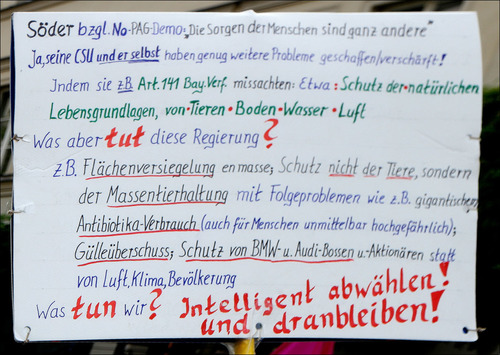 Söder bzgl. No-PAG-Demo: „Die Sorgen der Menschen sind ganz andere"
Ja, seine CSU und er selbst haben genug weitere Probleme geschaffen/verschärft!
Indem sie z.B. Art. 141 Bay. Verf. missachten: Etwa: Schutz der natürlichen
Lebensgrundlagen, von • Tieren • Boden • Wasser • Luft
Was aber tut diese Regierung?
z.B. Flächenversiegelung en masse; Schutz nicht der Tiere, sondern
der Massentierhaltung mit Folgeproblemen wie z.B. gigantischen
Antibiotika-Verbrauch (auch für Menschen unmittelbar hochgefährlich);
Gülleüberschuss; Schutz von BMW- u. Audi-Bossen u.-Aktionären statt
von Luft, Klima, Bevölkerung
Was tun wir? Intelligent abwählen!
und dranbleiben!